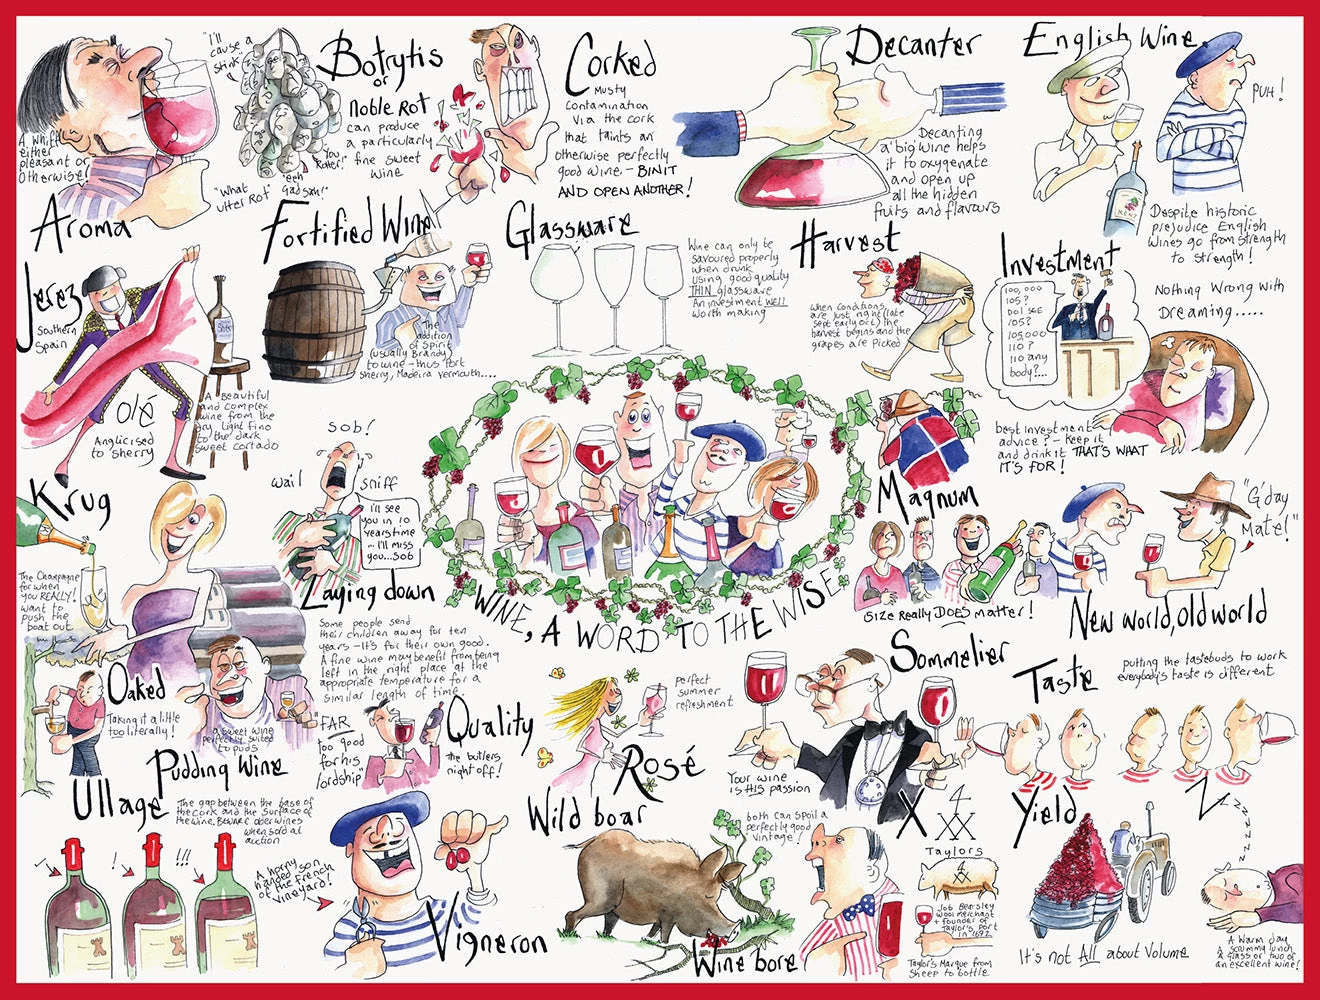 A whiff
either
pleasant or
otherwise
Aroma
"I'll
cause a
stink"
"You
Rotter!"
"eeh
Gadsam!"
"What
utter Rot"
Botrytis
or
Noble Rot
can produce
a particularly
fine sweet
wine
Corked
Musty
Contamination
Via the cork
that taints an
otherwise perfectly
good wine. - BIN IT
AND OPEN ANOTHER!
Decanter
Decanting
a 'big' wine helps
it to oxygenate
and open up
all the hidden
fruits and flavours
English Wine
PUH!
KENT
Despite historic
prejudice English
Wines go from strength
to strength!
Jerez
Southern
Spain
Olé
Anglicised
to Sherry
A Beautiful
and complex
wine from the
dry light fino
to the dark
sweet cortado
Fortified Wine
The
addition
of Spirit
(usually Brandy)
to wine - thus Port
Sherry, Madeira vermouth....
Glassware
Wine can only be
savoured properly
when drunk
using good quality
THIN glassware
An investment WELL
worth making
Harvest
When conditions
are just right (late
sept early oct) the
harvest begins and the
grapes are picked
Investment
100,000
105?
Do I see
105?
105,000
110?
110 any
body?...
Nothing Wrong with
Dreaming.....
best investment
advice? - keep it
and drink it THAT'S WHAT
IT'S FOR!
Krug
The Champagne
for when
you REALLY!
want to
push the
boat out
Sob!
wail
sniff
i'll see
you in 10
years time
- I'll miss
you...sob
Laying down
Some people send
their children away for ten
years - it's for their own good.
A fine wine may benefit from being
left in the right place at the
appropriate temperature for a
similar length of time.
WINE, A WORD TO THE WISE
Magnum
Size Really DOES matter!
"G'day
Mate!"
New world, old world
Oaked
Taking it a little
too literally!
a sweet wine
perfectly suited
to puds
Pudding Wine
"FAR
too good
for his
lordship"
Quality
the butlers
night off!
perfect
summer
refreshment
Rosé
Sommelier
Your wine
is HIS passion
Taste
putting the tastebuds to work
everybody's taste is different
Ullage
The gap between the base of
the cork and the surface of
the wine. Beware older wines
when sold at
auction
!
!!!
A horny
handed son
of the French
vineyard!
Vigneron
Wild boar
both can spoil a
perfectly good
vintage!
Wine bore
X
Taylors
Job Bearsley
wool merchant
+ founder of
Taylor's port
in 1692
Taylor's Marque from
sheep to bottle
Yield
It's not All about Volume
Zzzzzzz
A Warm day
A scrummy lunch
A glass or two of
an excellent wine!